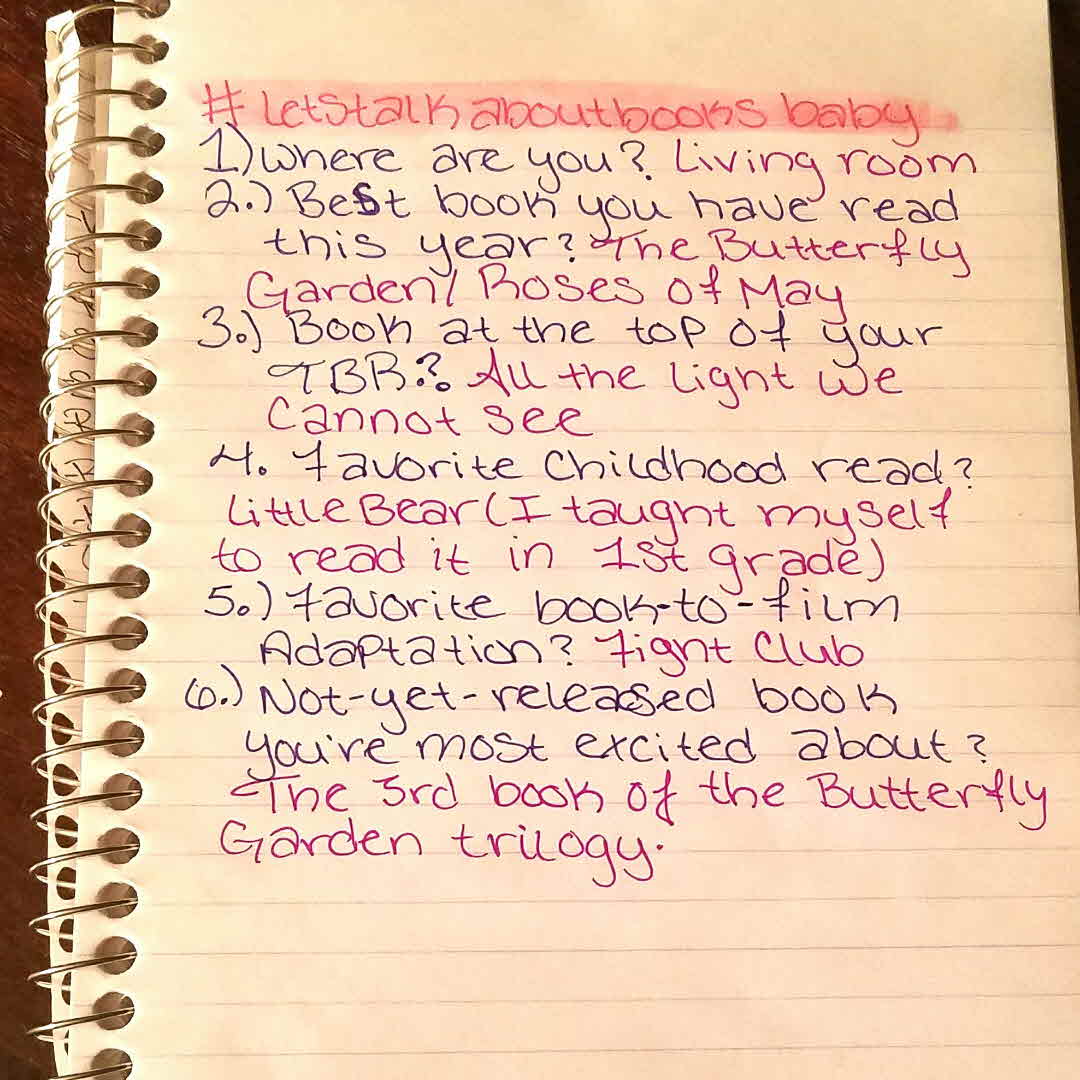 # letstalkaboutbooks baby
1.) Where are you? Living room
2.) Best book you have read
this year? The Butterfly
Garden/ Roses of May
3.) Book at the top of your
TBR? All the light we
cannot see
4. Favorite Childhood read?
Little Bear (I taught myself
to read it in 1st grade)
5.) Favorite book-to-film
Adaptation? Fight Club
6.) Not-yet-released book
you're most excited about?
The 3rd book of the Butterfly
Garden trilogy.